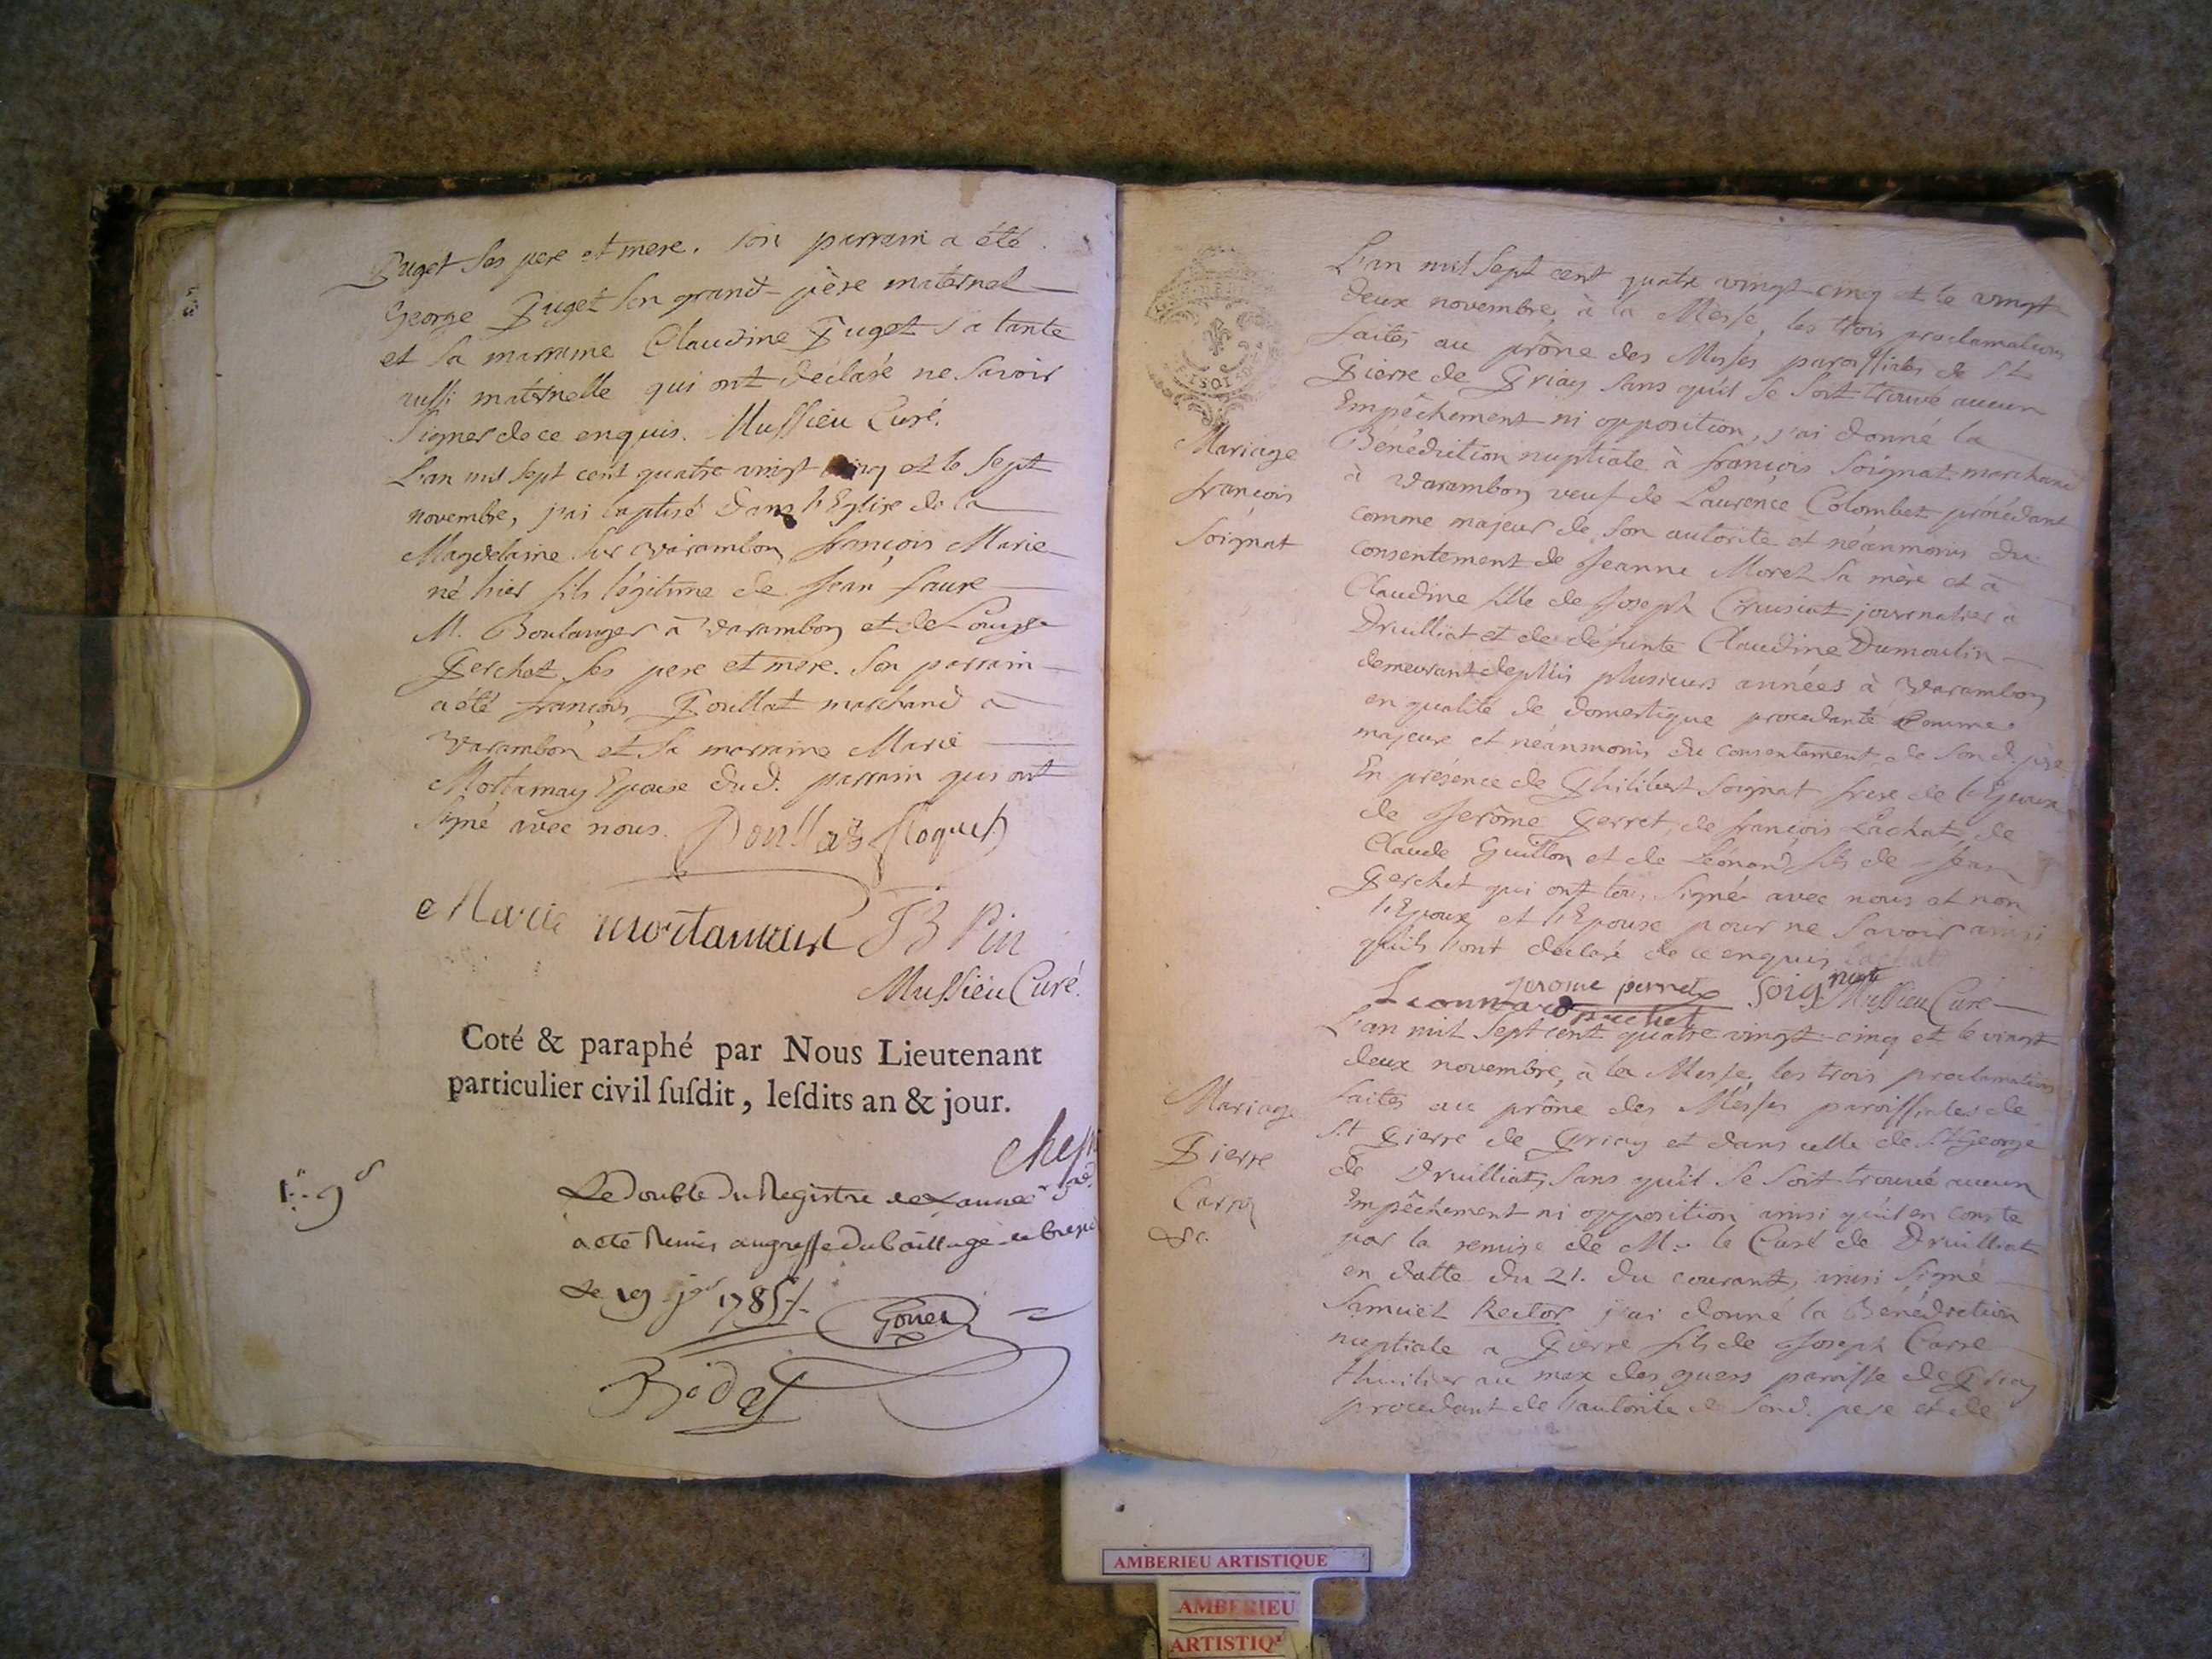 Puget ses pere et mere. son parrain a été
George Puget son grand père maternel
et sa marraine Claudine Puget sa tante
aussi maternelle qui ont déclaré ne savoir
signer de ce enquis. Mussieu Curé.
L'an mil sept cent quatre vingt cinq et le sept
novembre, j'ai baptisé dans l'Eglise de la
Magdelaine sur varambon françois Marie
né hier fils légitime de Jean faure
M. Boulanger à varambon et de Louise
Perchet ses pere et mere. Son parrain
a été françois Poullat marchand à
varambon et sa marraine Marie
Mortamay Epouse dud. parrain qui ont
signé avec nous. Poullat floquet
Marie mortamais JB Pin
Mussieu Curé.
Coté & paraphé par Nous Lieutenant
particulier civil susdit, lesdits an & jour.
Le double du Registre de L'année
a été Remis au greffe du baillage de bresse
Le 19 1785
L'an mil sept cent quatre vingt cinq et le vingt
deux novembre, à la Messe, les trois proclamations
faites au prône des Messes paroissiales de St
Pierre de Priay sans qu'il se soit trouvé aucun
Empêchement ni opposition, j'ai donné la
Mariage
françois
Soignat
Bénédiction nuptiale à françois Soignat marchand
à varambon veuf de Laurence Colombet procédant
comme majeur de son autorité et néanmoins du
consentement de Jeanne Morel sa mère et à
Claudine fille de Joseph Cruisiat journalier à
Druilliat et de défunte Claudine Dumoulin
demeurant depuis plusieurs années à varambon
en qualité de domestique procédante comme
majeure et néanmoins du consentement de son d. père
En présence de Philibert Soignat frere de l'Epoux
de Jerôme Perret, de françois Lachat, de
Claude Guillon et de Léonard fils de Jean
Perchet qui ont tous signé avec nous et non
l'Epoux et l'Epouse pour ne savoir ainsi
qu'ils l'ont déclaré de ce enquis Lachat
jerome perret Soignat Mussieu Curé
Leonnard perchet
L'an mil sept cent quatre vingt cinq et le vingt
deux novembre, à la Messe, les trois proclamations
Mariage
Pierre
Carre
&c.
faites au prône des Messes paroissiales de
St Pierre de Priay et dans celle de St George
de Druilliat, sans qu'il se soit trouvé aucun
Empêchement ni opposition ainsi qu'il en conste
par la remise de M. le Curé de Druilliat
en datte du 21. du courant, ainsi signé
Samuel Rector j'ai donné la Bénédiction
nuptiale à Pierre fils de Joseph Carre
thuilier au max des guers paroisse de Priay
procédant de l'autorité de sond. pere et de
AMBERIEU ARTISTIQUE
AMBERIEU
ARTISTIQ